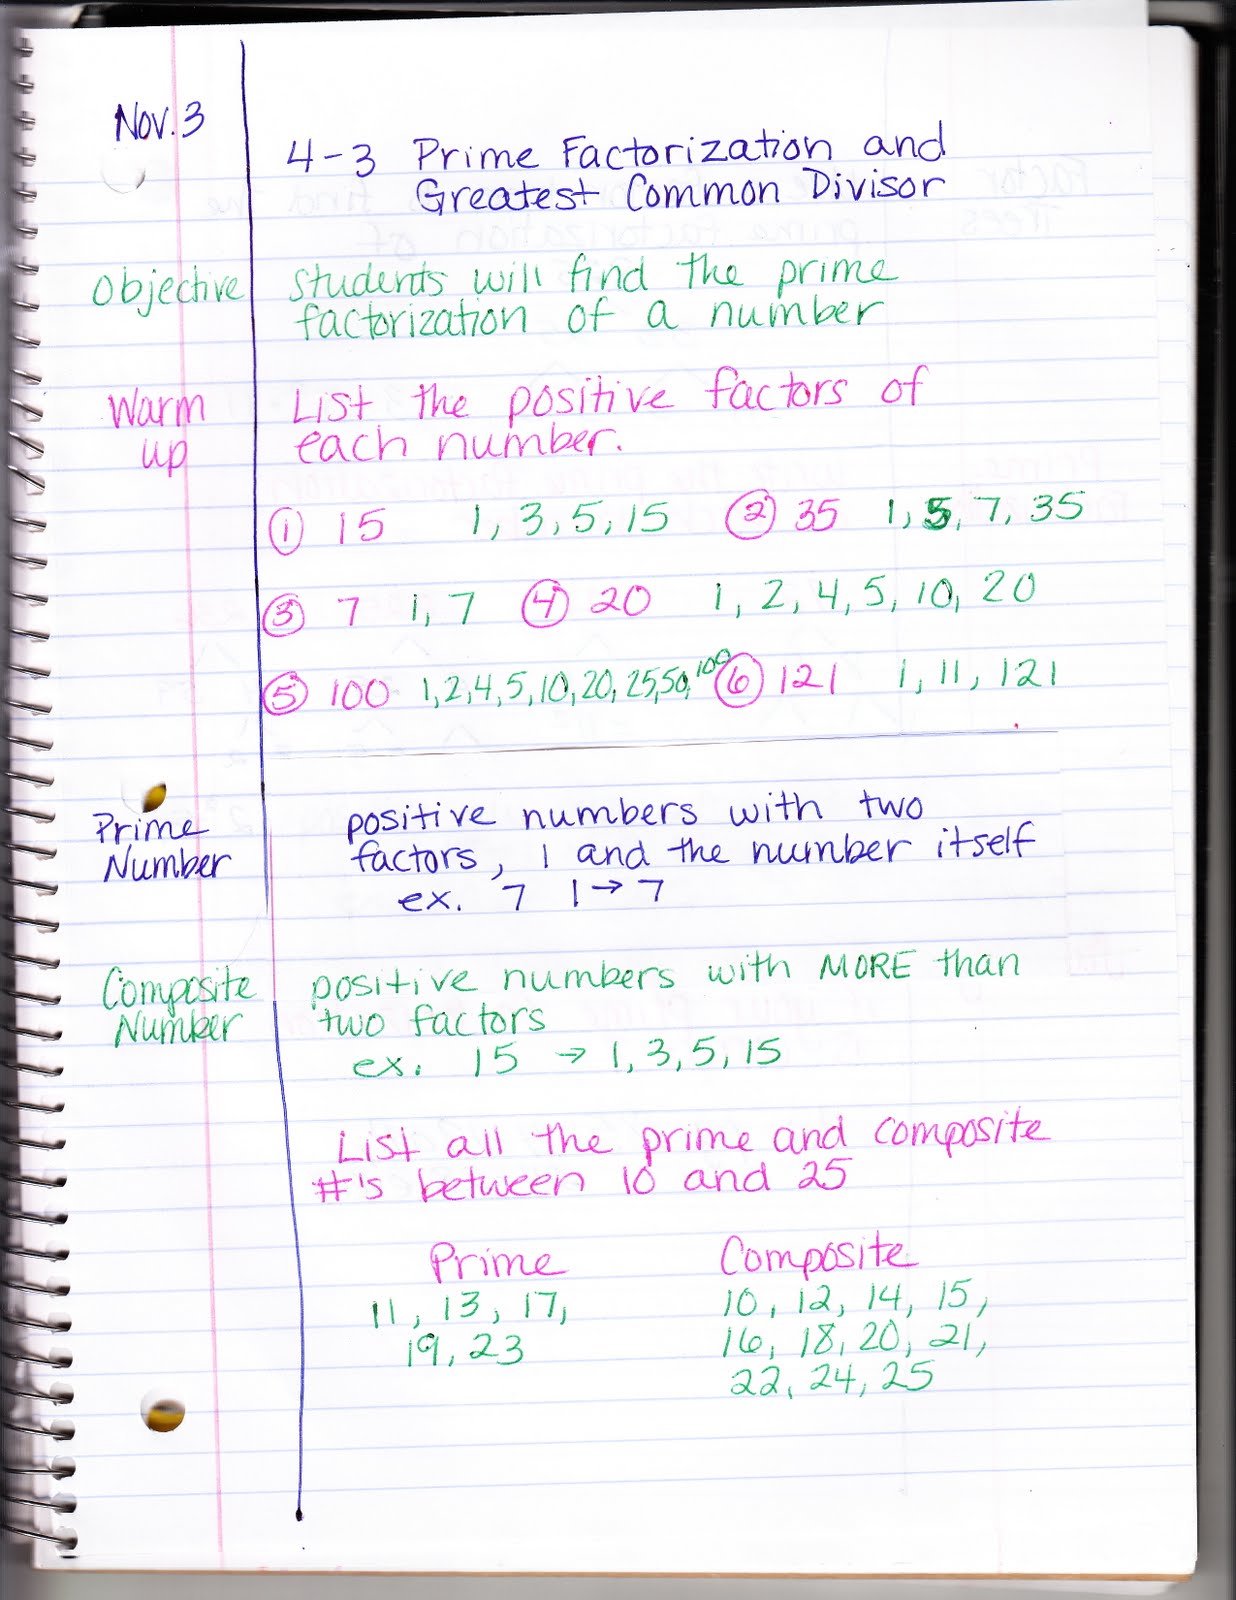 Nov. 3
4-3 Prime Factorization and
Greatest Common Divisor
Objective students will find the prime
factorization of a number
Warm up List the positive factors of
each number.
① 15 1, 3, 5, 15 ② 35 1, 5, 7, 35
③ 7 1, 7 ④ 20 1, 2, 4, 5, 10, 20
⑤ 100 1, 2, 4, 5, 10, 20, 25, 50, 100 ⑥ 121 1, 11, 121
Prime Number positive numbers with two
factors, 1 and the number itself
ex. 7 1 → 7
Composite Number positive numbers with MORE than
two factors
ex. 15 → 1, 3, 5, 15
List all the prime and composite
#'s between 10 and 25
Prime Composite
11, 13, 17, 10, 12, 14, 15,
19, 23 16, 18, 20, 21,
22, 24, 25